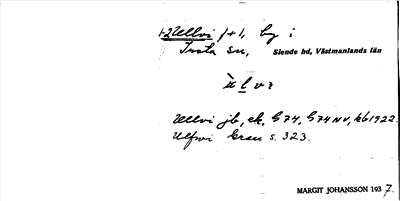 1-2 Ullvi 1+1, by i
Irsta sn, Siende hd, Västmanlands län
ùl v ı
Ullvi jb, ek, G74, G74 NV, kb 1922.
Ulfwi Grau s. 323.
MARGIT JOHANSSON 1937.